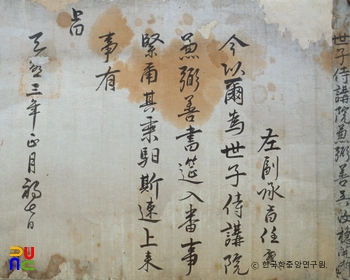 世子侍講院兼弼善
左副承旨任
今以爾爲世子侍講院
兼弼善書筵入番事
緊爾其乘馹斯速上來
事有
旨
天啓三年正月初七日
© 한국학중앙연구원